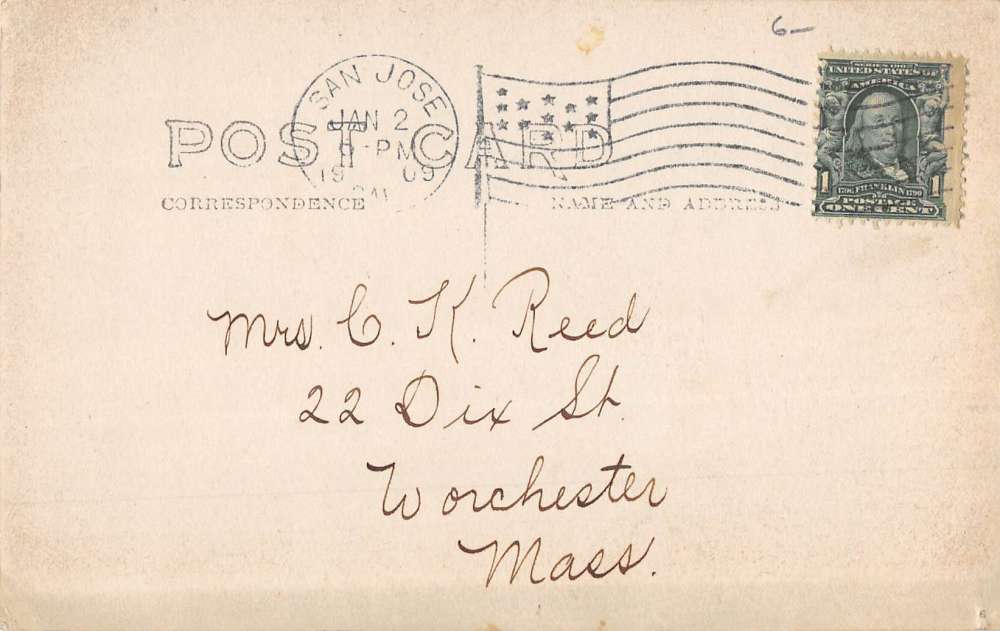 6—
SAN JOSE
JAN 2
6-PM
1909
CAL
POST CARD
CORRESPONDENCE
NAME AND ADDRESS
SERIES 1902
UNITED STATES OF
AMERICA
1706 FRANKLIN 1790
1 1
POSTAGE
ONE CENT
Mrs. C. K. Reed
22 Dix St.
Worchester
Mass.
6